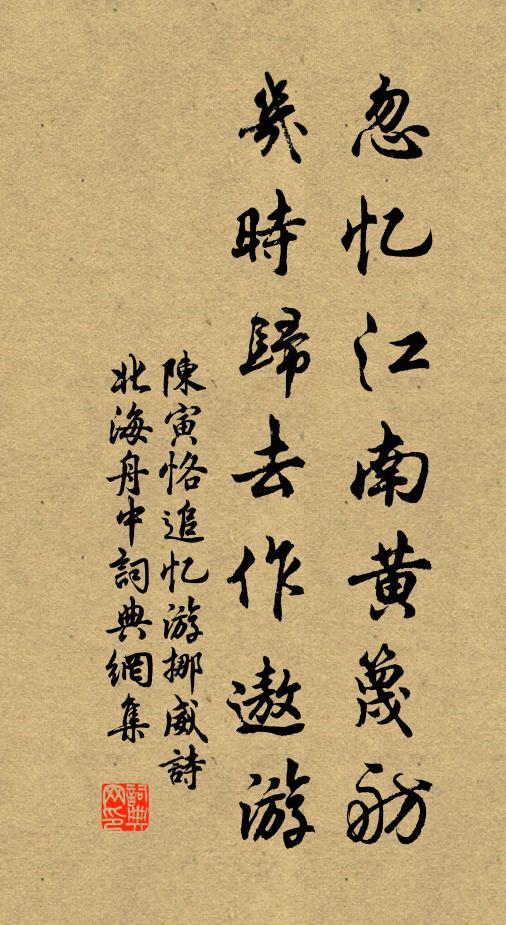 忽忆江南黄篾舫
幾時歸去作遨游
陳寅恪追忆游挪威詩
北海舟中詞典網集
詞典網印